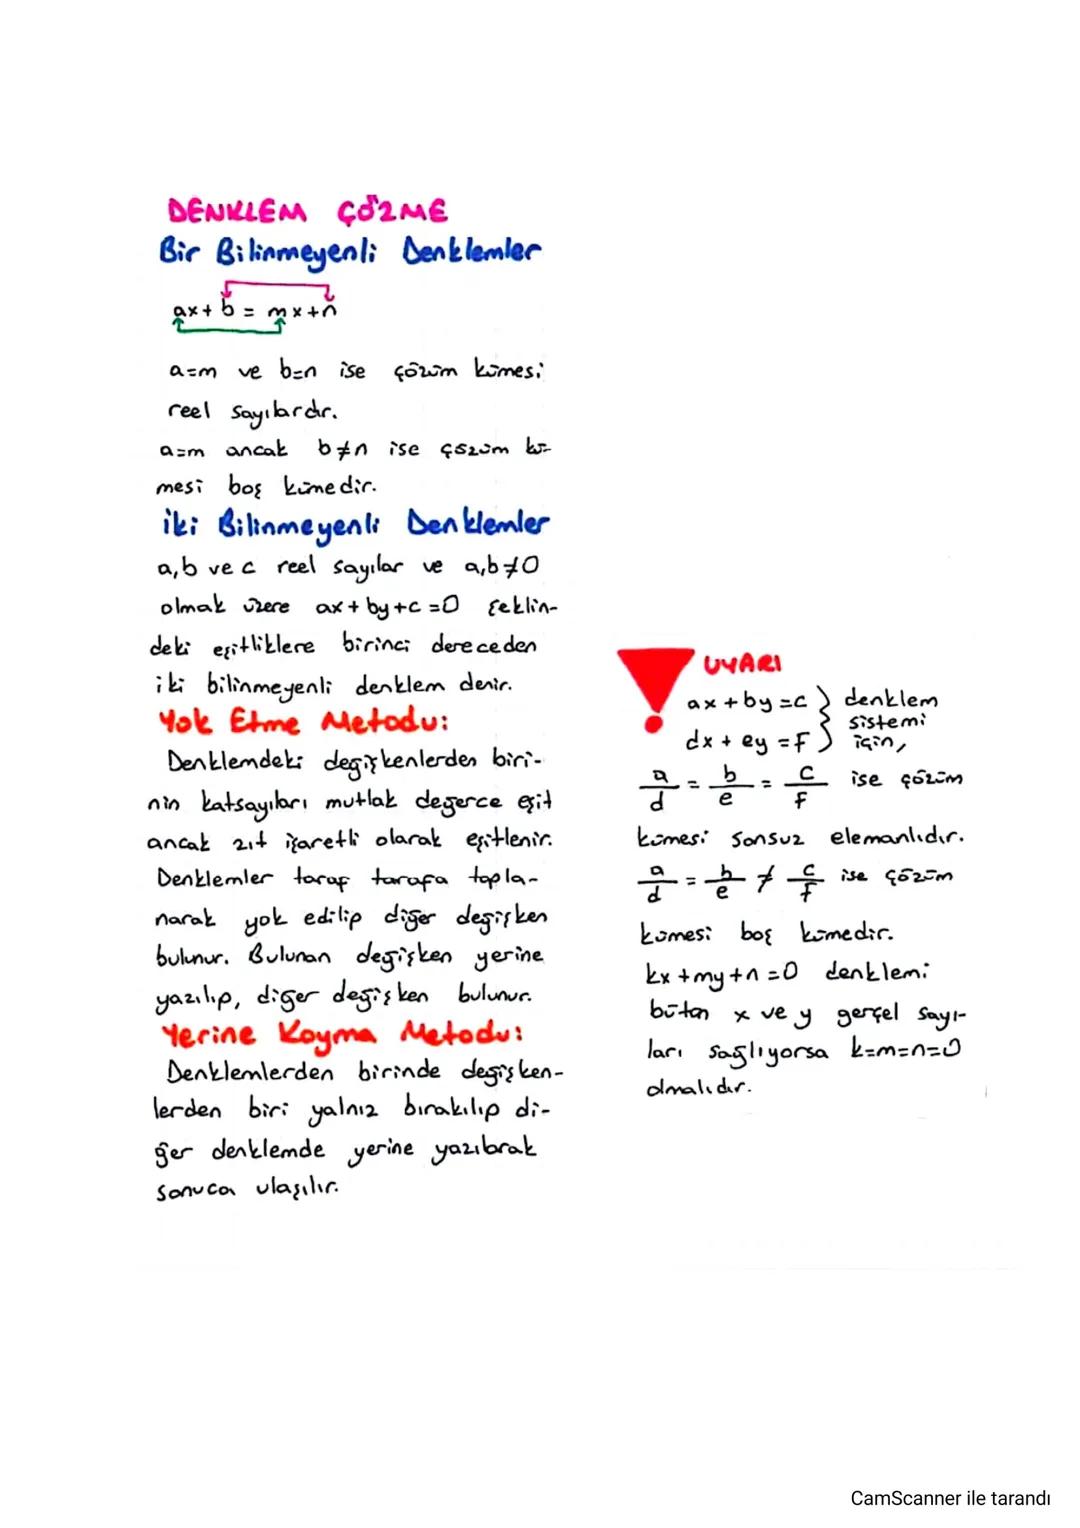 DENKLEM ÇÖZME
Bir Bilinmeyenli Denklemler
ax+b=mx+n
a=m ve b=n ise çözüm kümesi
reel sayılardır.
a=m ancak b≠n ise çözüm kü-
mesi boş kümedir.
İki Bilinmeyenli Denklemler
a,b ve c reel sayılar ve a,b≠0
olmak üzere ax+by+c=0 şeklin-
deki eşitliklere birinci dereceden
iki bilinmeyenli denklem denir.
Yok Etme Metodu:
Denklemdeki değişkenlerden biri-
nin katsayıları mutlak değerce eşit
ancak zıt işaretli olarak eşitlenir.
Denklemler taraf tarafa topla-
narak yok edilip diğer değişken
bulunur. Bulunan değişken yerine
yazılıp, diğer değişken bulunur.
Yerine Koyma Metodu:
Denklemlerden birinde değişken-
lerden biri yalnız bırakılıp di-
ğer denklemde yerine yazılarak
sonuca ulaşılır.
UYARI
ax+by=c } denklem
dx+ey=f } sistemi için,
a/d = b/e = c/f ise çözüm
kümesi sonsuz elemanlıdır.
a/d = b/e ≠ c/f ise çözüm
kümesi boş kümedir.
kx+my+n=0 denklemi
bütün x ve y gerçel sayı-
ları sağlıyorsa k=m=n=0
olmalıdır.
CamScanner ile tarandı